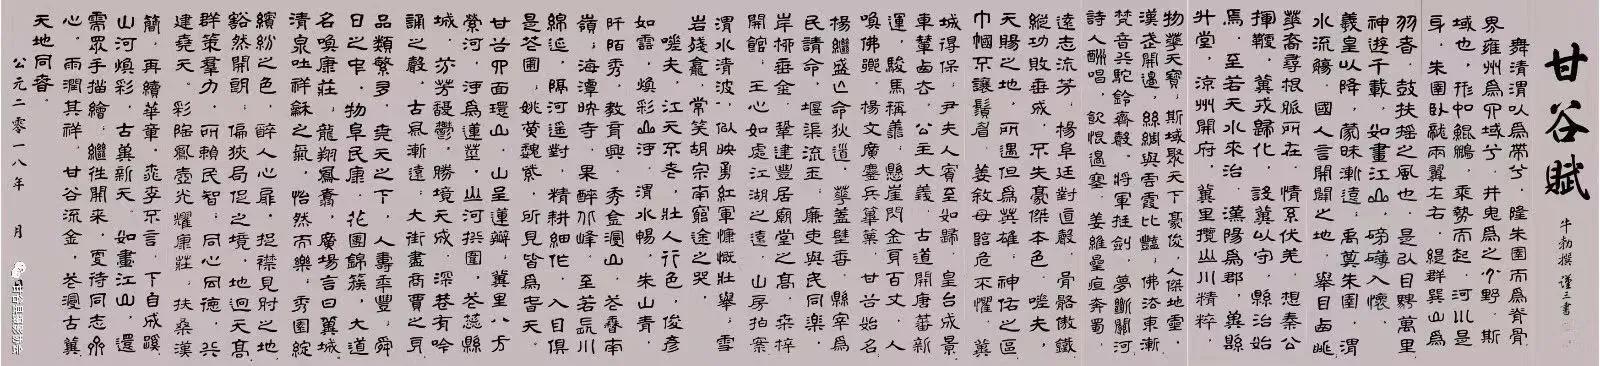 甘谷賦
牛勃撰 謹三書
舞清渭以爲帶兮，隆朱圉而爲脊骨
界雍州爲四域兮，井鬼爲之分野，斯
域也，形如鯤鵬，乘勢而起，河川是
身，朱圉臥龍兩翼左右，緹群巽山爲
羽脊，鼓扶搖之風也，是以目騁萬里
神遊千載，如畫江山，磅礴入懷，
義皇以降，蒙昧漸遠；禹奠朱圉，渭
水流觴，國人言開闢之地，舉目鹵眺
華裔尋根脈所在，情系伏羌，想秦公
揮鞭，冀戎歸化，設冀以守，縣治始
焉，至若天水來治，漢陽爲郡，冀縣
升堂，涼州開府，冀里攬山川精粹，
物華天寶，斯域聚天下豪俊，人傑地靈，
漢苤開邊，絲綢與雲霞比豔，佛法東漸
梵音共駝鈴齊聲，將軍拄劍，夢斷關河
詩人酬唱，飲恨邊塞，姜維壘頭奔蜀，
遠志流芳，楊阜廷對直聲，骨骼傲鐵
縱功敗垂成，不失豪傑本色，嗟夫，
天賜之地，所遇但爲梟雄，神佑之區
巾幗不讓鬚眉，姜敘母臨危不懼，冀
城得保，尹夫人賓至如歸，皇台成景
車輦鹵去，公主大義，古道開唐蕃新
運，駿馬稱驫，懸崖閃金身百丈，人
喚佛爺，楊文廣鏖兵篳篥，甘谷始名
楊繼盛亡命狄道，華蓋壁香，縣宰爲
民請命，堰渠流玉，廉吏與民同樂，
岸柳垂金，鞏建豐居廟堂之高，桑梓
開館，王心如處江湖之遠，山房拍案
渭水清波，似映勇紅軍慷慨壯舉，雪
岩殘龕，常笑胡宗南窮途之哭，
嗟夫，江天不老，壯人行色，俊彥
如雲，煥彩山河，渭水暢，朱山青，
阡陌秀，教育興，秀金漫山，谷香南
嶺；海潭映寺，果醉北峰，至若蔬川
綿延，隔河遥對，精耕細作，入目俱
是谷圃，姚黃魏紫，所見皆爲杏天，
甘谷四面環山，山呈蓮瓣，冀里八方
縈河，河爲蓮莖，山河撰圖，谷蕊縣
城，芬芳馥鬱，勝境天成，深巷有吟
誦之聲，古風漸遠；大街盡商賈之身
品類繁多，堯天之下，人壽年豐，舜
日之中，物阜民康，花團錦簇，大道
名喚康莊；龍翔鳳翥，廣場言曰冀城
清泉吐祥穌之氣，怡然而樂，秀園綻
繽紛之色，醉人心扉，捉襟見肘之地
豁然開朗；偏狹局促之境，地迥天高
群策羣力，所賴民智；同心同德，共
建堯天，彩陶鳳壺光耀康莊，扶桑漢
簡，再續華章，桃李不言，下自成蹊
山河煥彩，古冀新天，如畫江山，還
需眾手描繪；繼往開來，更待同志齐
心，雨潤其祥，甘谷流金，谷漫古冀
天地同春，
公元二零一八年 月